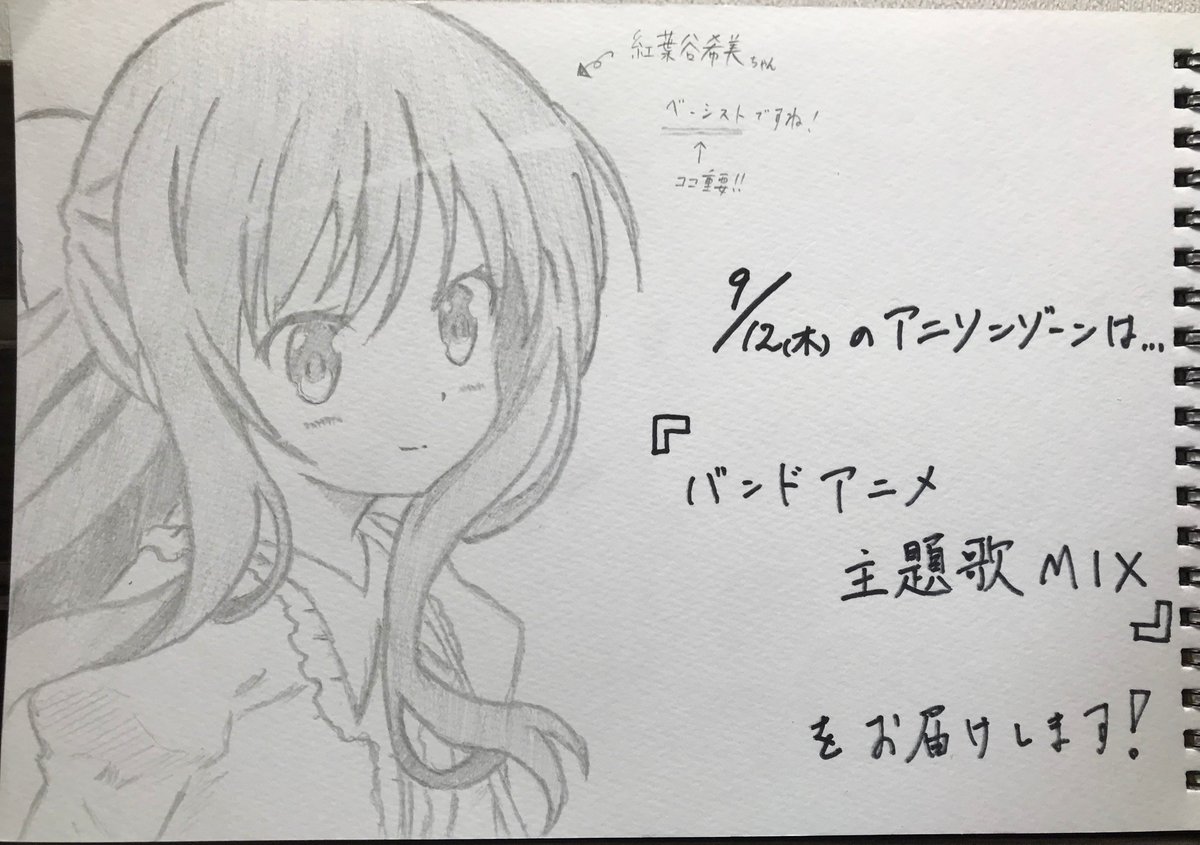 紅葉谷希美ちゃん
ベーシストですね!
↑
ココ重要!!
9/12(木)のアニソンゾーンは...
『
バンドアニメ
主題歌MIX
』
をお届けします!